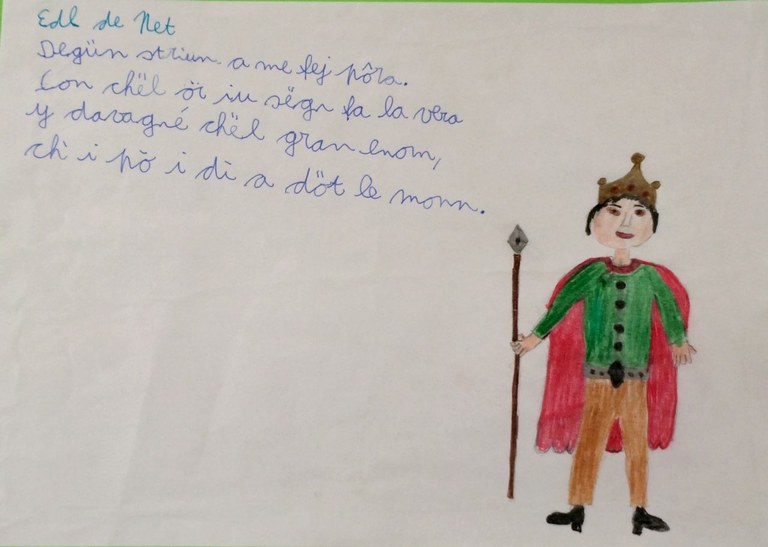 Edl de Net
Degün striun a me fej pôra.
Con chël öi iu sëgn fa la vera
y davagné chël gran enom,
ch'i pò i dì a döt le monn.